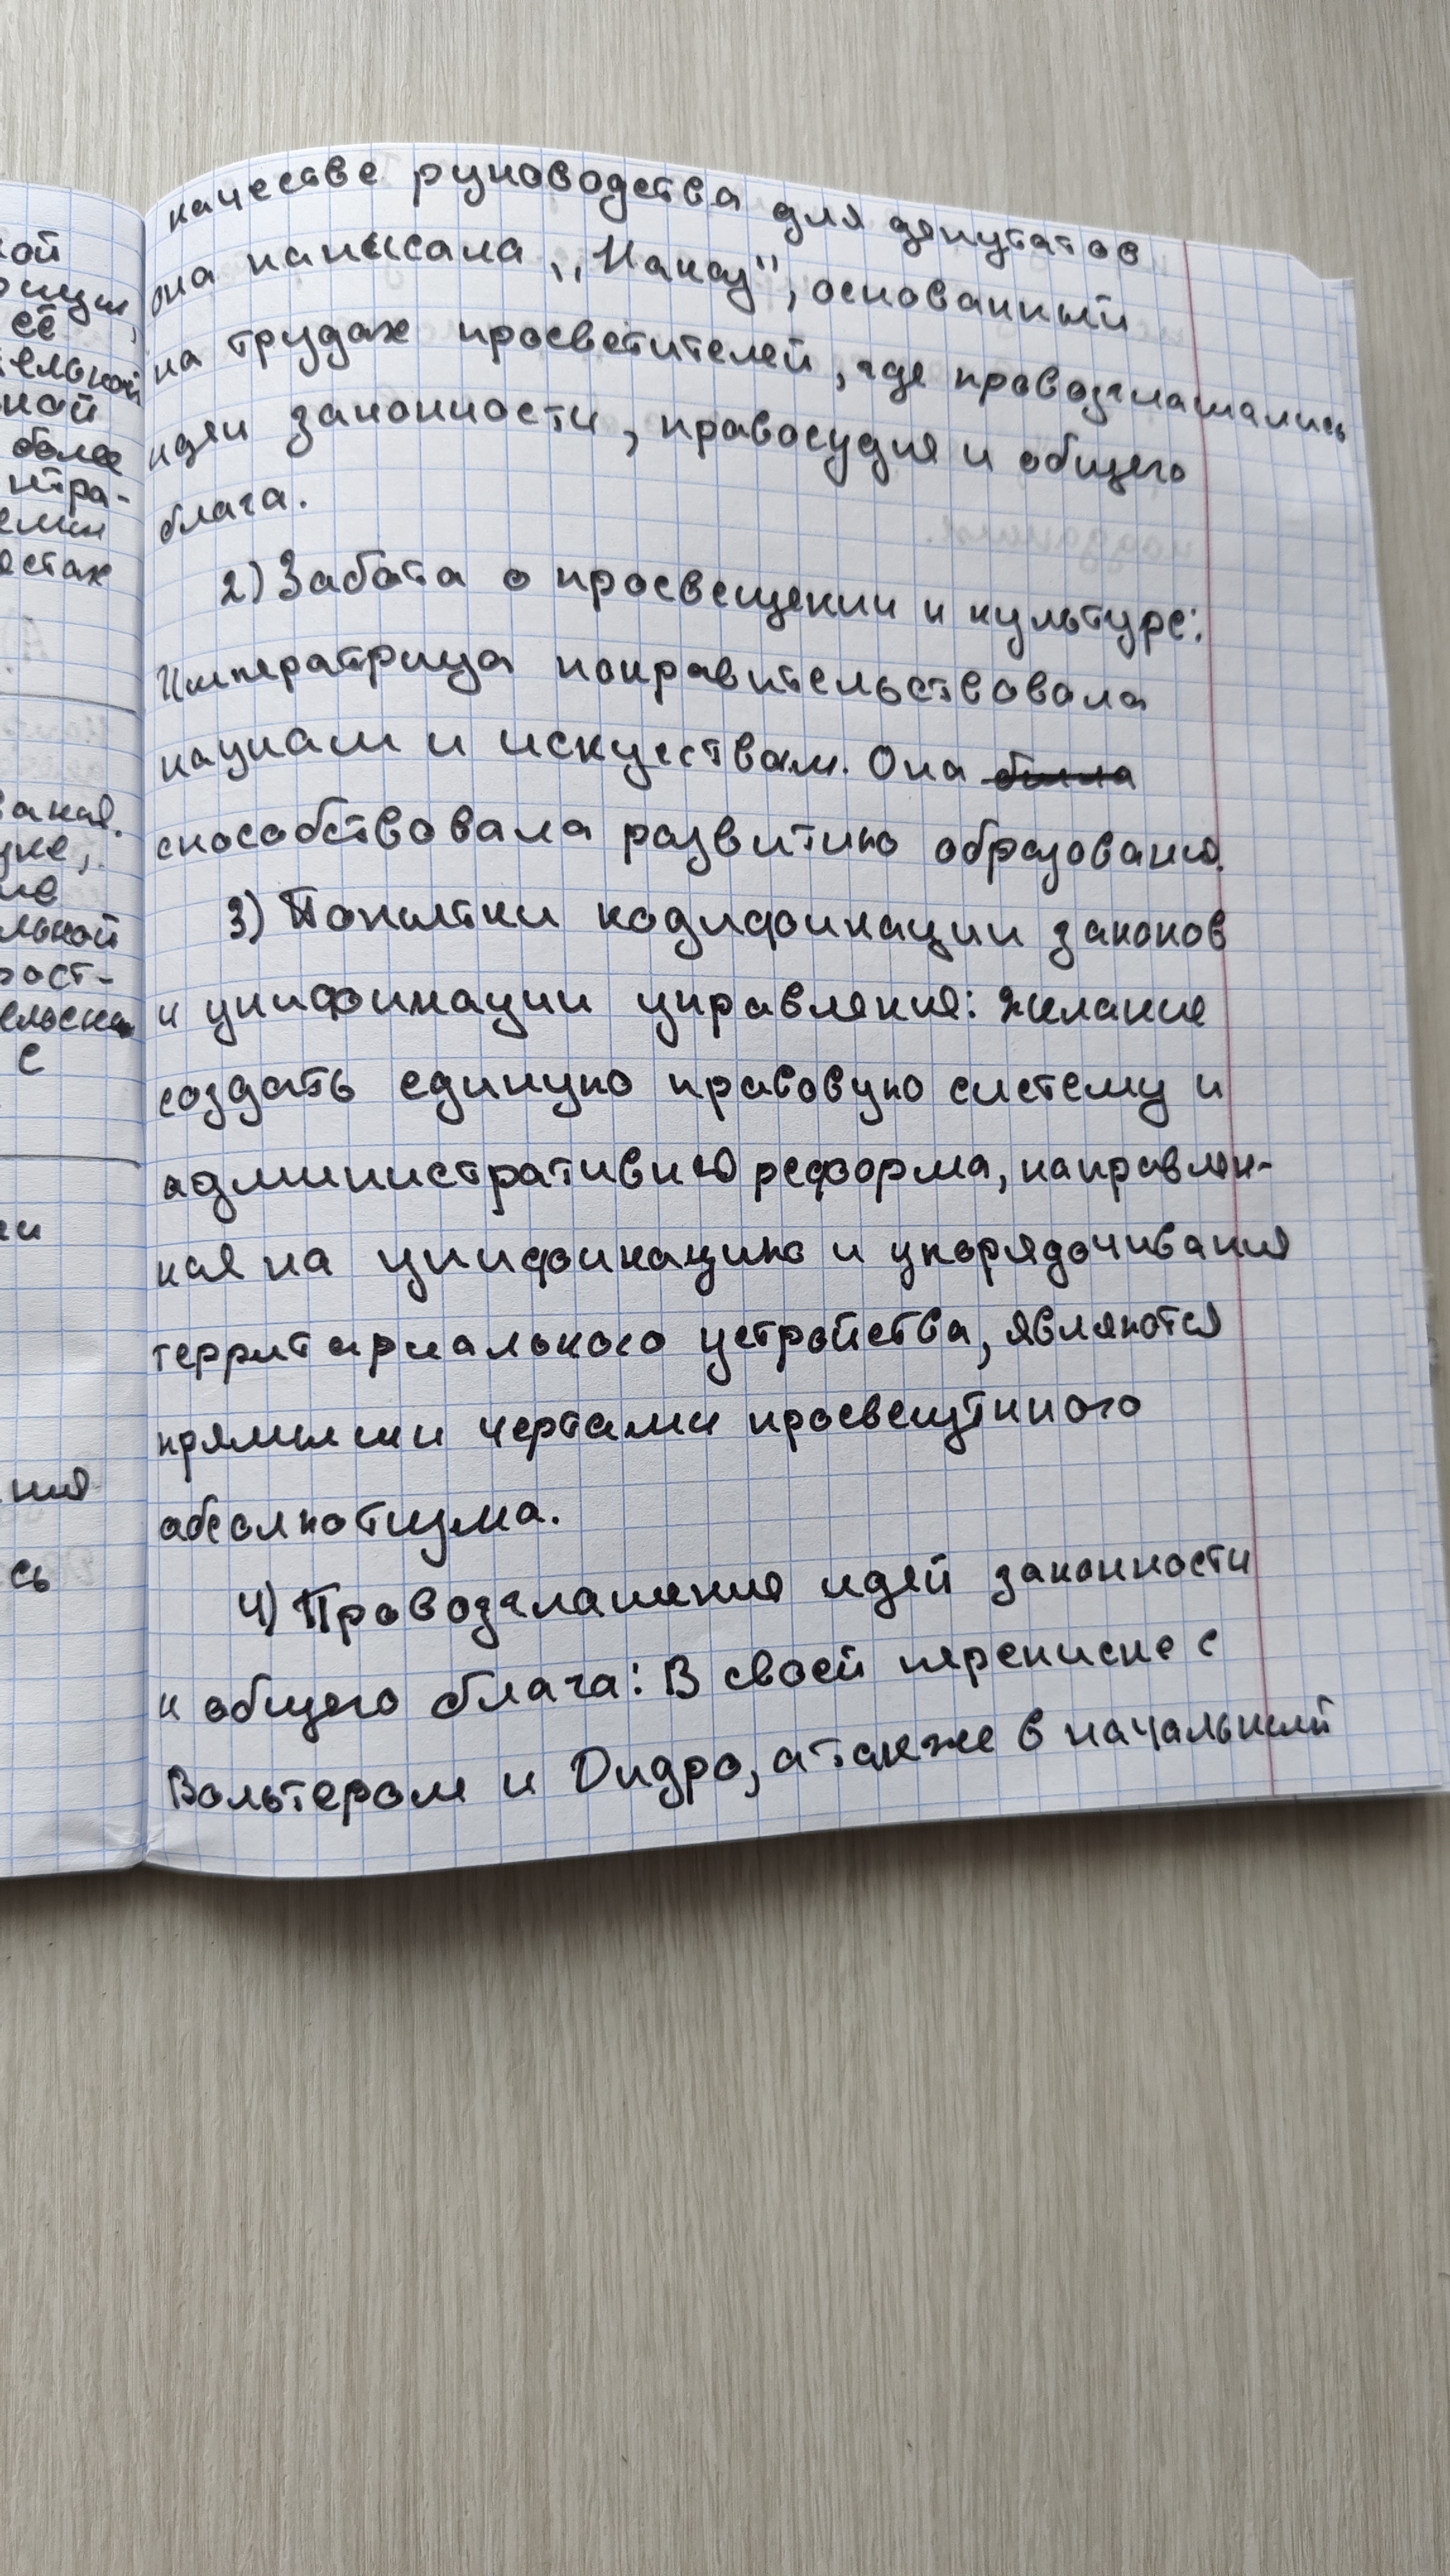 кой
 её
ельной
ной
более
нтра-
еми
естах
ие
льной
рост-
ельска
с
ии
ния
сь
качестве руководства для депутатов
она написала ,,Наказ", основанный
на трудах просветителей, где провозглашались
идеи законности, правосудия и общего
блага.
2) Забота о просвещении и культуре:
Императрица покравительствовала
наукам и искуествам. Она ~~была~~
способствовала развитию образования.
3) Попытки кодификации законов
и унификации управления: желание
создать единую правовую систему и
административную реформа, направлен-
ная на унификацию и упорядочивания
территориального устройства, являются
прямыми чертами просвещённого
абсолютизма.
4) Провозглашения идей законности
и общего блага: В своей переписке с
Вольтером и Дидро, а также в начальный